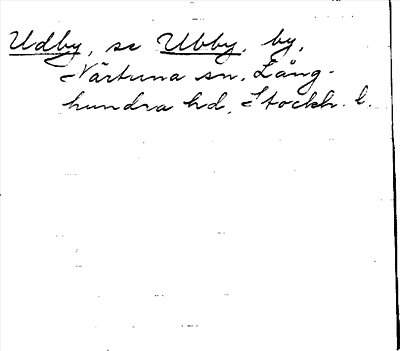 Udby, se Ubby, by,
Närtuna sn, Lång-
hundra hd, Stockh. l.